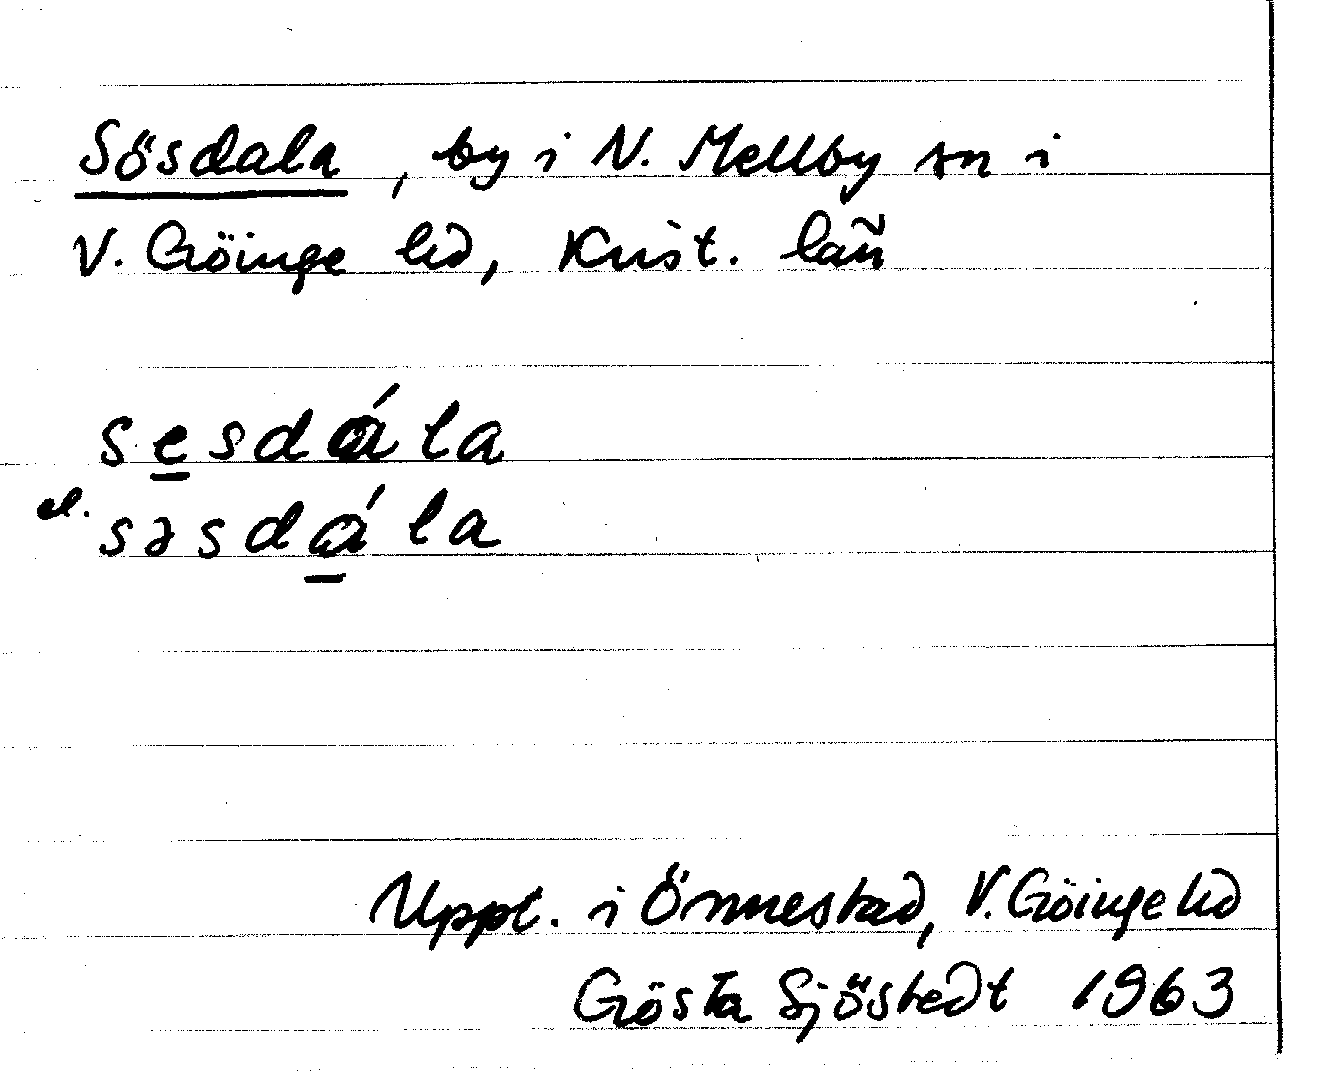 Sösdala, by i N. Mellby sn i
V. Göinge hd, Krist. län
sesdála
el. səsdála
Uppt. i Önnestad, V. Göinge hd
Gösta Sjöstedt 1963